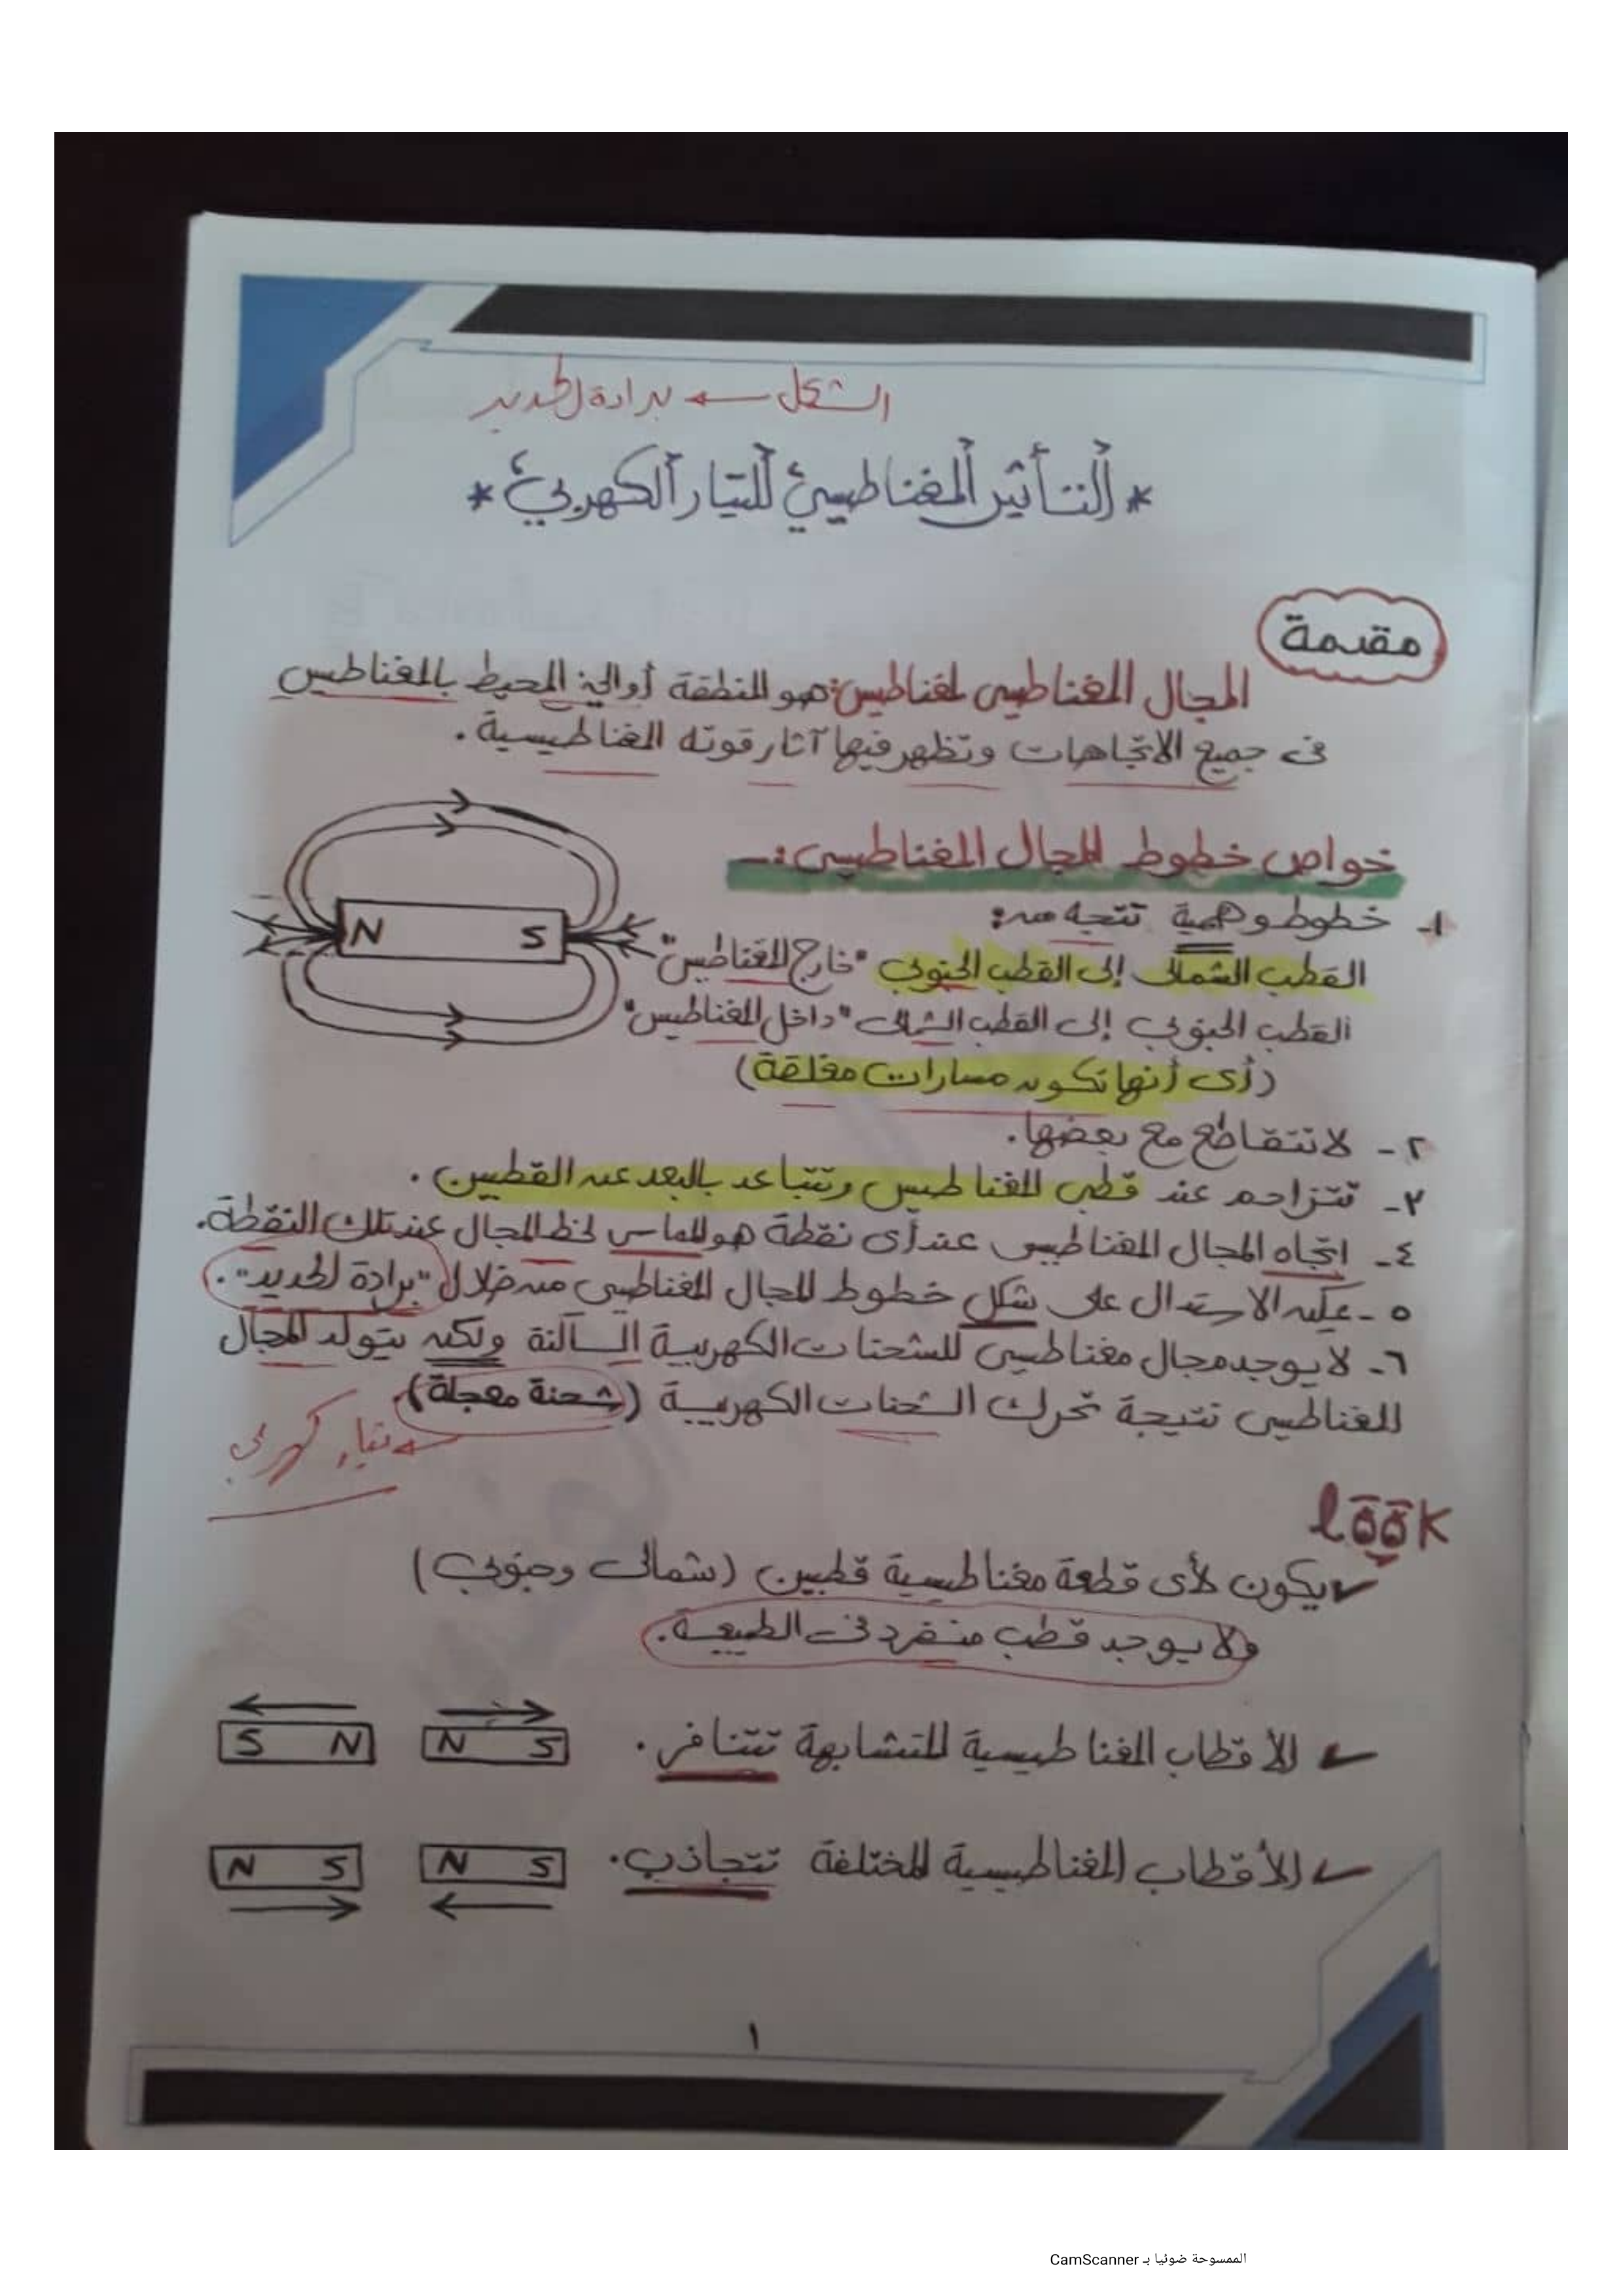 الشكل ← برادة الحديد
* التأثير المغناطيسي للتيار الكهربي *
مقدمة
المجال المغناطيسى لمغناطيس: هو المنطقة أو الحيز المحيط بالمغناطيس
فى جميع الاتجاهات وتظهر فيها آثار قوته المغناطيسية .
خواص خطوط المجال المغناطيسى :-
١- خطوط وهمية تتجه من:
القطب الشمالى إلى القطب الجنوبى "خارج المغناطيس"
القطب الجنوبى إلى القطب الشمالى "داخل المغناطيس"
(أى أنها تكون مسارات مغلقة)
N S
٢- لا تتقاطع مع بعضها.
٣- تتزاحم عند قطبى المغناطيس وتتباعد بالبعد عن القطبين .
٤- اتجاه المجال المغناطيسى عند أى نقطة هو المماس لخط المجال عند تلك النقطة.
٥- يمكن الاستدلال على شكل خطوط المجال المغناطيسى من خلال "برادة الحديد".
٦- لا يوجد مجال مغناطيسى للشحنات الكهربية الساكنة ولكن يتولد المجال
المغناطيسى نتيجة تحرك الشحنات الكهربية (شحنة معجلة).
← تيار كهربى
look
✓ يكون لأى قطعة مغناطيسية قطبين (شمالى وجنوبى)
ولا يوجد قطب منفرد فى الطبيعة.
✓ الأقطاب المغناطيسية المتشابهة تتنافر .
S N N S
✓ الأقطاب المغناطيسية المختلفة تتجاذب.
N S N S
١
الممسوحة ضوئيا بـ CamScanner